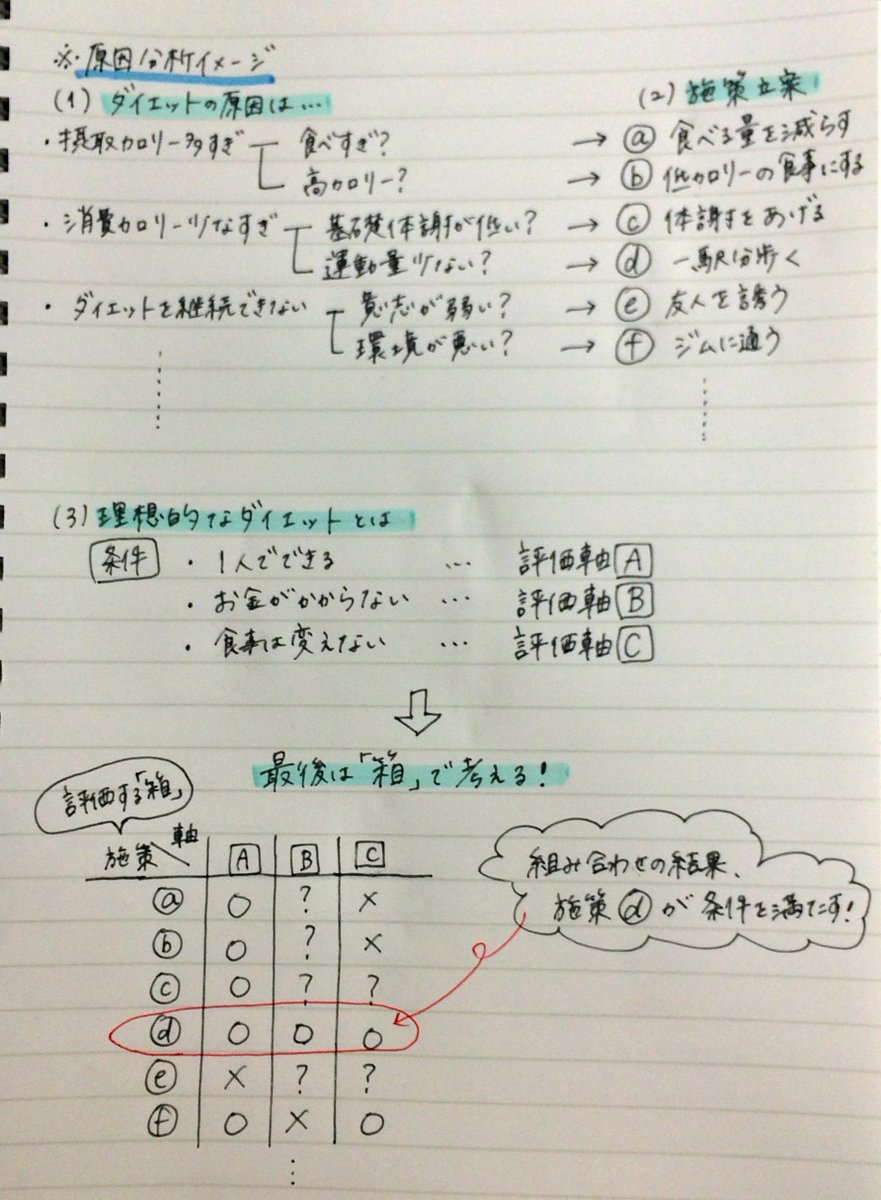 ※ 原因分析イメージ
(1) ダイエットの原因は…
(2) 施策立案
・摂取カロリー多すぎ 食べすぎ? → ⓐ 食べる量を減らす
高カロリー? → ⓑ 低カロリーの食事にする
・消費カロリー少なすぎ 基礎体謝が低い? → ⓒ 体謝をあげる
運動量少ない? → ⓓ 一駅分歩く
・ダイエットを継続できない 意志が弱い? → ⓔ 友人を誘う
環境が悪い? → ⓕ ジムに通う
(3) 理想的なダイエットとは
条件 ・1人でできる … 評価軸 A
・お金がかからない … 評価軸 B
・食事は変えない … 評価軸 C
最後は「箱」で考える!
評価する「箱」
施策＼軸 A B C
ⓐ ○ ? ×
ⓑ ○ ? ×
ⓒ ○ ? ?
ⓓ ○ ○ ○
ⓔ × ? ?
ⓕ ○ × ○
組み合わせの結果、
施策ⓓが条件を満たす!